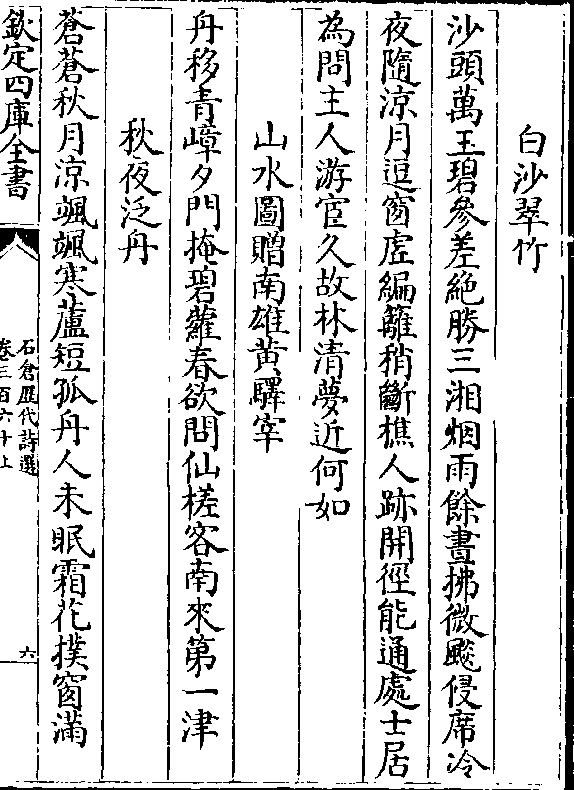 白沙翠竹
沙頭萬玉碧參差絶勝三湘烟雨餘晝拂微颸侵席冷
夜隨涼月逗窗虚編籬稍斷樵人跡開徑能通處士居
為問主人游宦久故林清夢近何如
山水圖贈南雄黃驛宰
舟移青嶂夕門掩碧蘿春欲問仙槎客南來第一津
秋夜泛舟
蒼蒼秋月凉颯颯寒蘆短孤舟人未眠霜花撲窗滿
欽定四庫全書
石倉歷代詩選
卷三百六十上
六